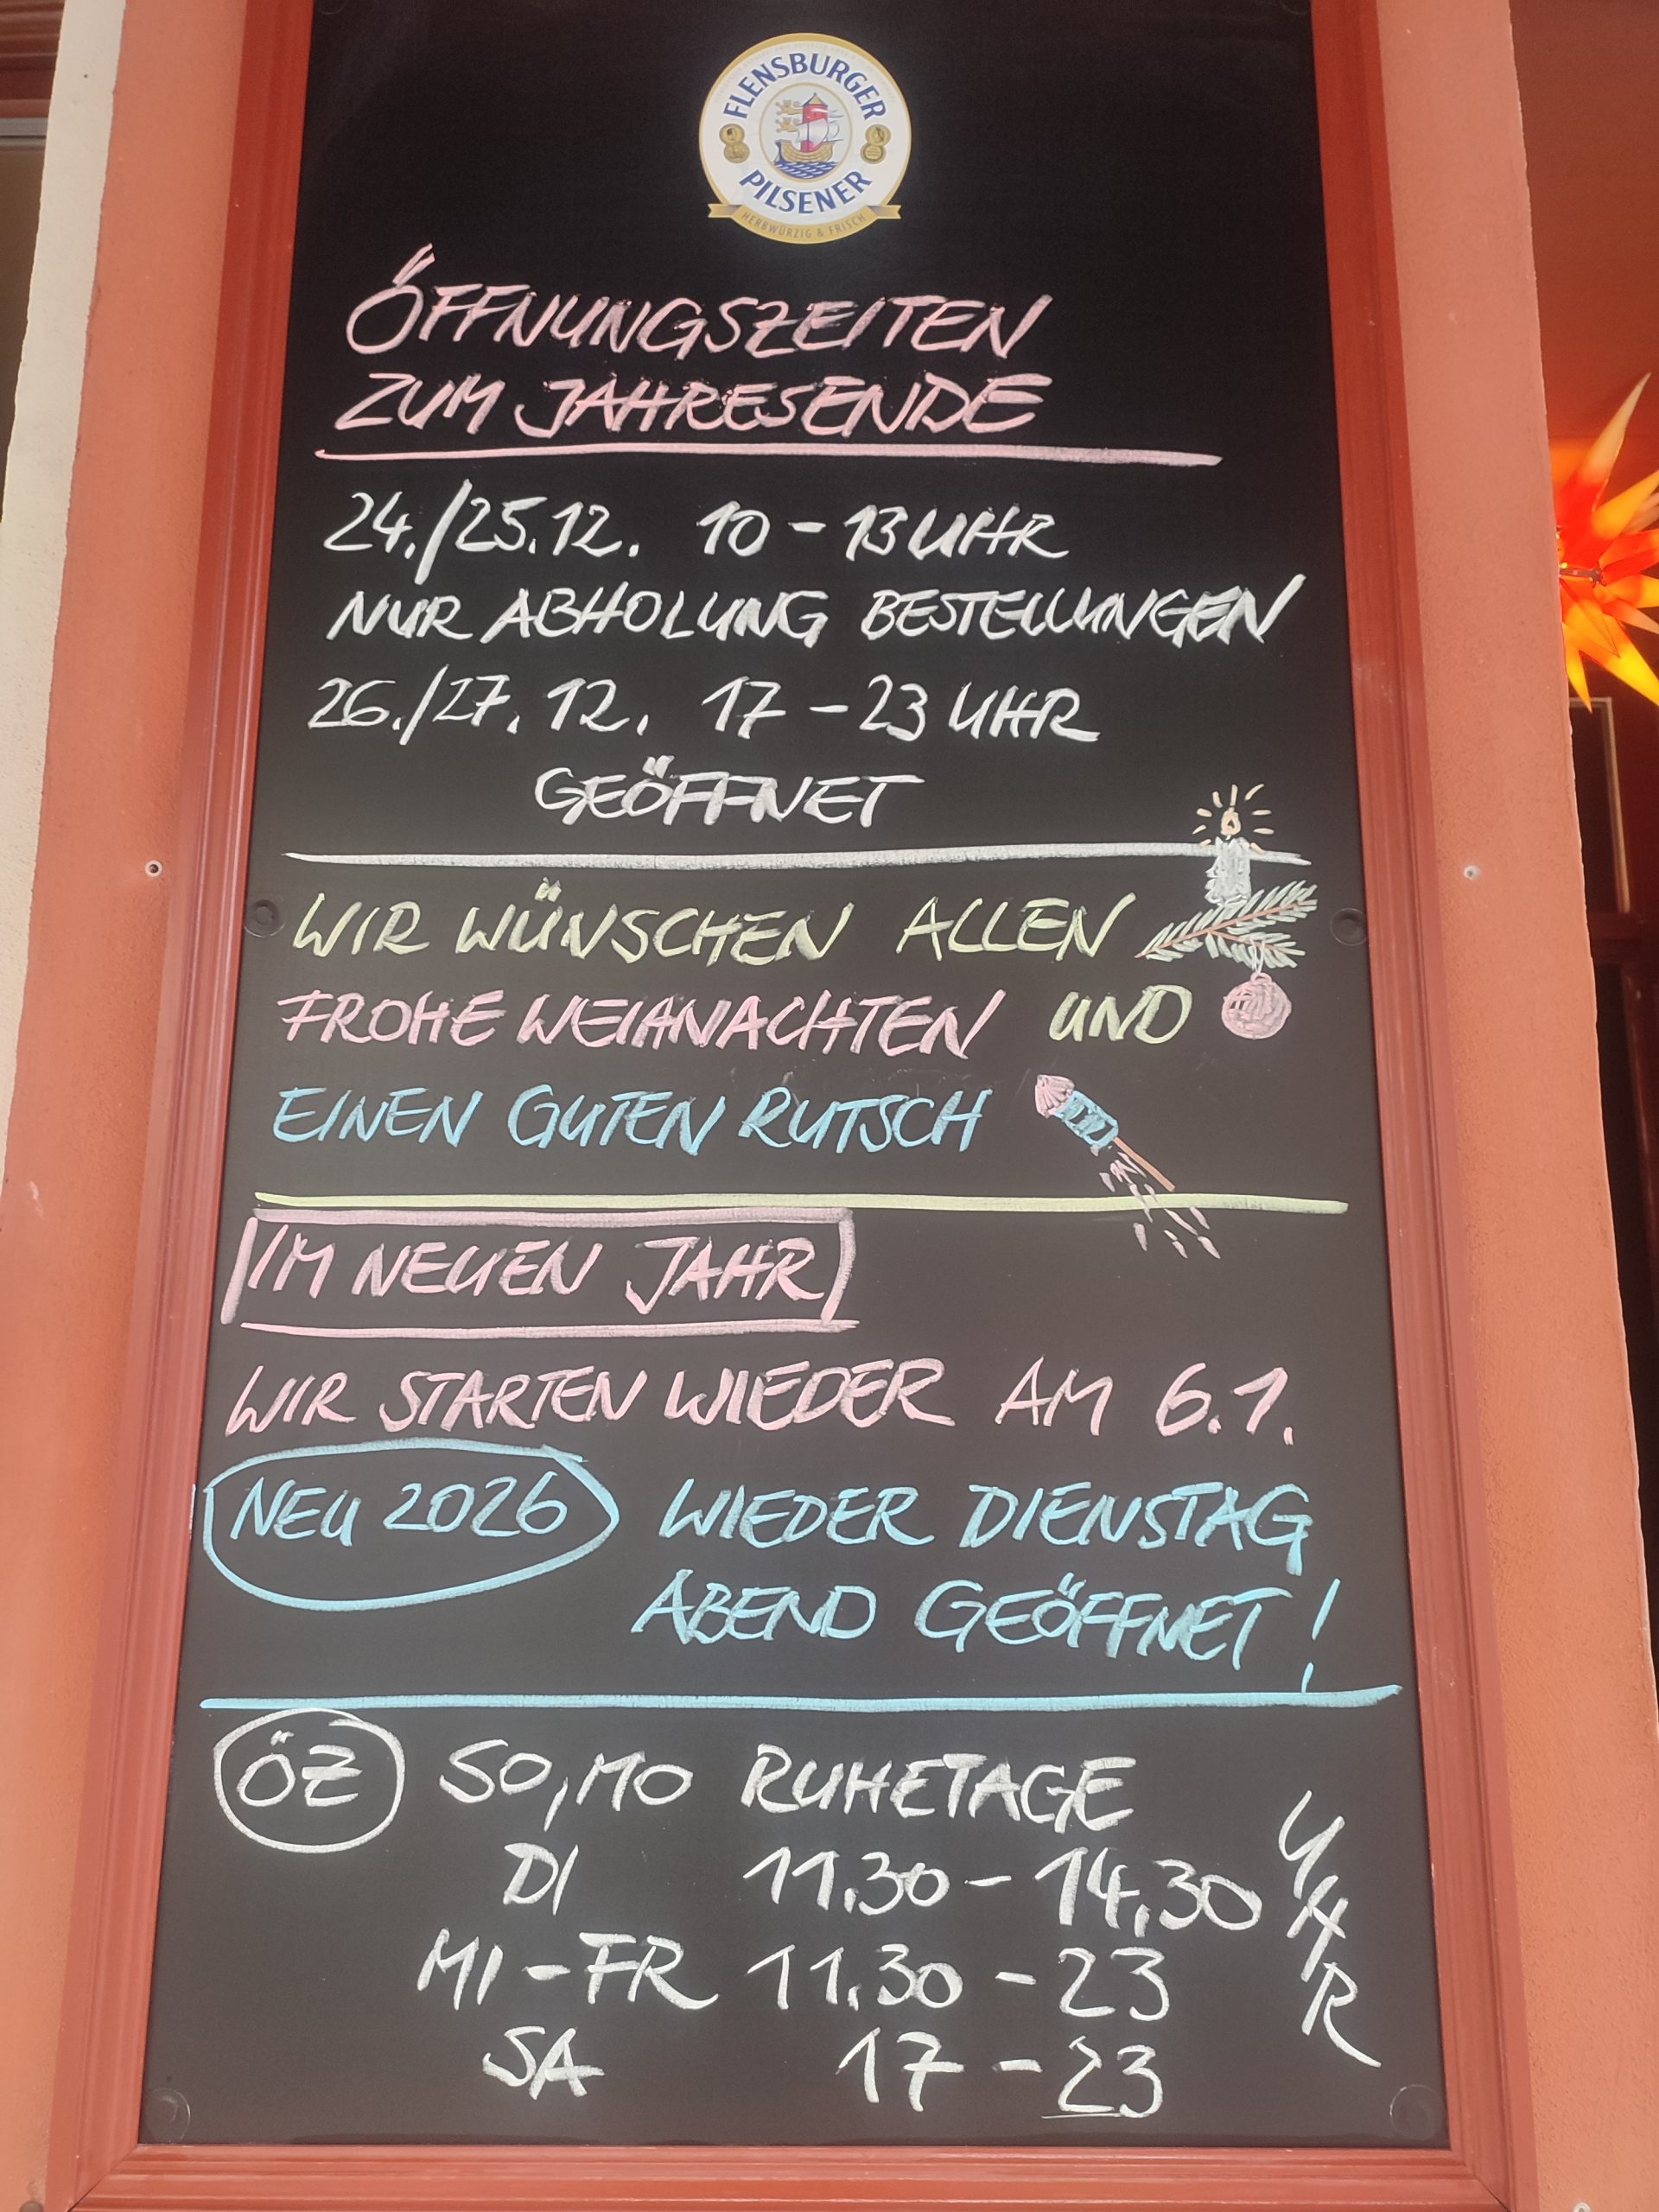 FLENSBURGER
PILSENER
HERBWÜRZIG & FRISCH
ÖFFNUNGSZEITEN
ZUM JAHRESENDE
24./25.12. 10 - 13 UHR
NUR ABHOLUNG BESTELLUNGEN
26./27.12. 17 - 23 UHR
GEÖFFNET
WIR WÜNSCHEN ALLEN
FROHE WEIHNACHTEN UND
EINEN GUTEN RUTSCH
IM NEUEN JAHR
WIR STARTEN WIEDER AM 6.1.
NEU 2026 WIEDER DIENSTAG
ABEND GEÖFFNET!
ÖZ SO, MO RUHETAGE
DI 11.30 - 14.30
MI - FR 11.30 - 23
SA 17 - 23
UHR